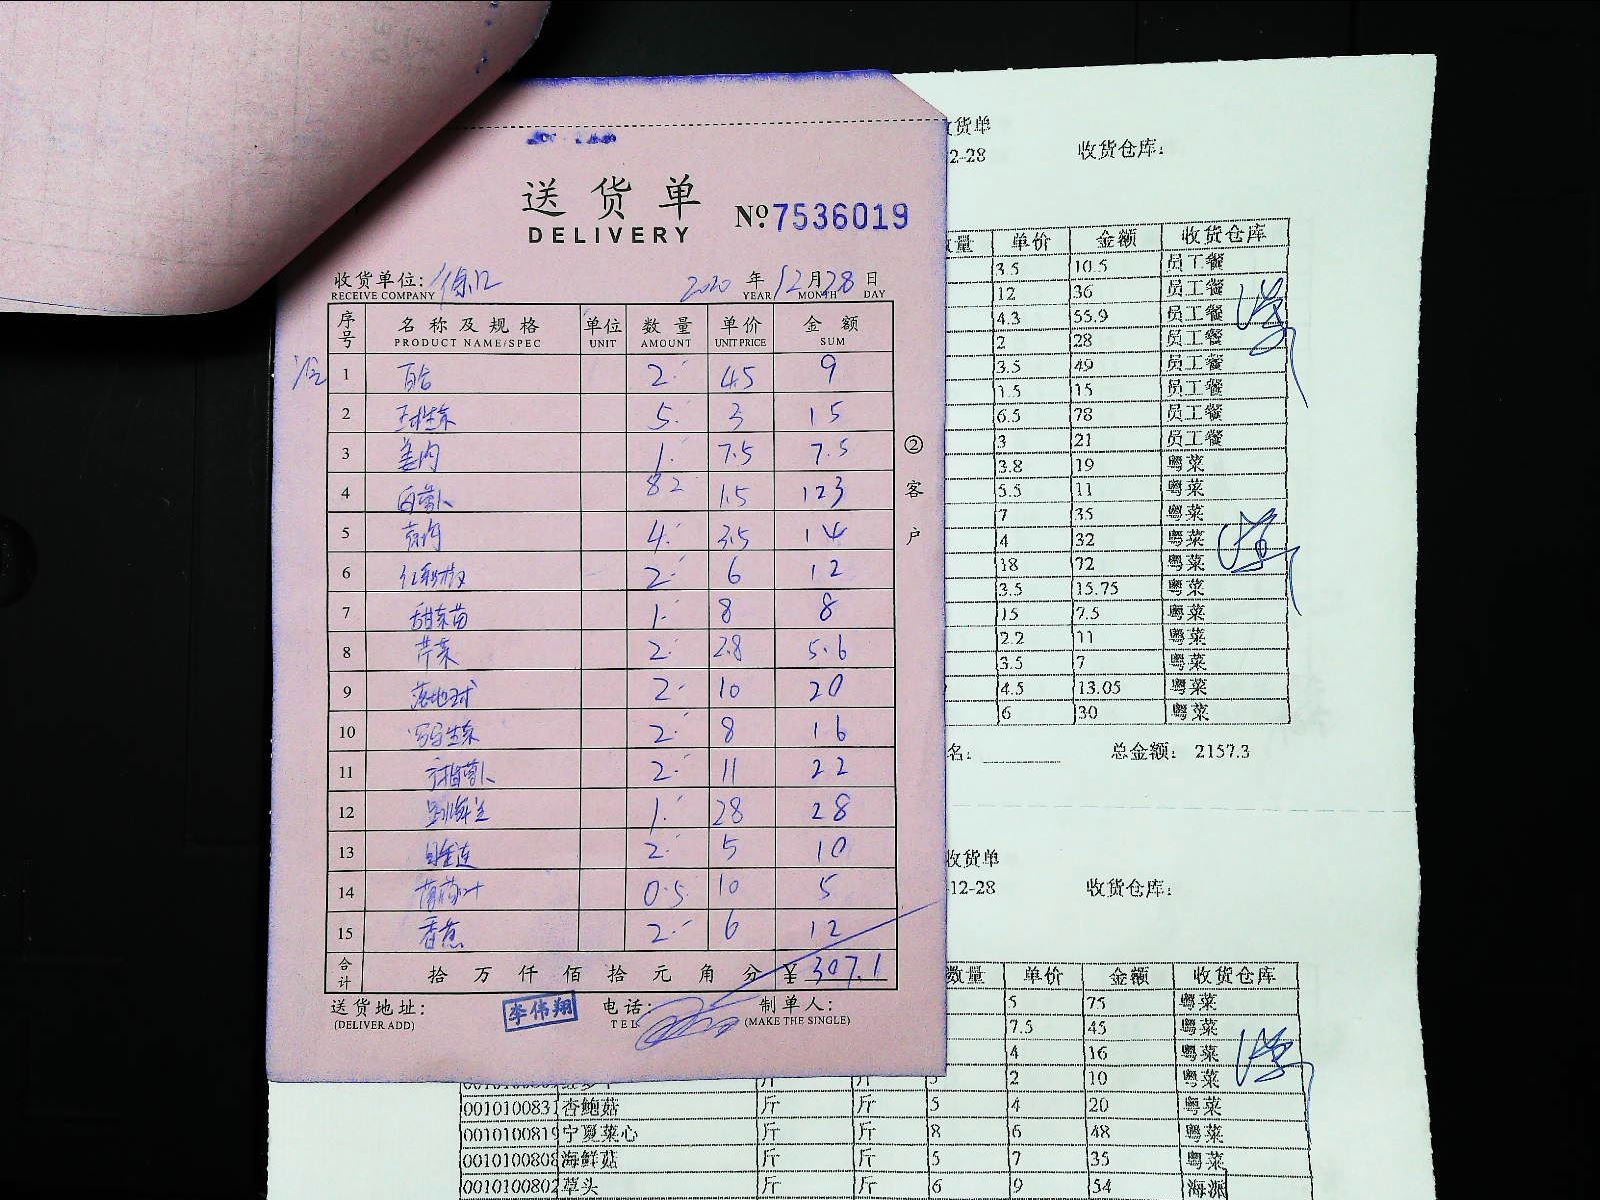 送货单
DELIVERY
№7536019
收货单位: 徐汇 2020年12月28日
RECEIVE COMPANY YEAR MONTH DAY
序号 名称及规格 单位 数量 单价 金额
PRODUCT NAME/SPEC UNIT AMOUNT UNIT PRICE SUM
1 百合 2 4.5 9
2 球生菜 5 3 15
3 姜肉 1 7.5 7.5
4 白萝卜 82 1.5 123
5 4 3.5 14
6 2 6 12
7 甜菜苗 1 8 8
8 芹菜 2 2.8 5.6
9 落地球 2 10 20
10 罗马生菜 2 8 16
11 萝卜 2 11 22
12 1 28 28
13 2 5 10
14 薄荷叶 0.5 10 5
15 香蕉 2 6 12
合计 拾 万 仟 佰 拾 元 角 分 ¥307.1
送货地址: 李伟翔 电话: 制单人:
(DELIVER ADD) TEL (MAKE THE SINGLE)
②客户
货单
2-28 收货仓库:
量 单价 金额 收货仓库
3.5 10.5 员工餐
12 36 员工餐
4.3 55.9 员工餐
2 28 员工餐
3.5 49 员工餐
1.5 15 员工餐
6.5 78 员工餐
3 21 员工餐
3.8 19 粤菜
5.5 11 粤菜
7 35 粤菜
4 32 粤菜
18 72 粤菜
3.5 15.75 粤菜
15 7.5 粤菜
2.2 11 粤菜
3.5 7 粤菜
4.5 13.05 粤菜
6 30 粤菜
名: 总金额: 2157.3
收货单
12-28 收货仓库:
数量 单价 金额 收货仓库
5 75 粤菜
7.5 45 粤菜
4 16 粤菜
斤 斤 5 2 10 粤菜
0010100831 杏鲍菇 斤 斤 5 4 20 粤菜
0010100819 宁夏菜心 斤 斤 8 6 48 粤菜
0010100808 海鲜菇 斤 斤 5 7 35 粤菜
0010100802 草头 斤 斤 6 9 54 海派